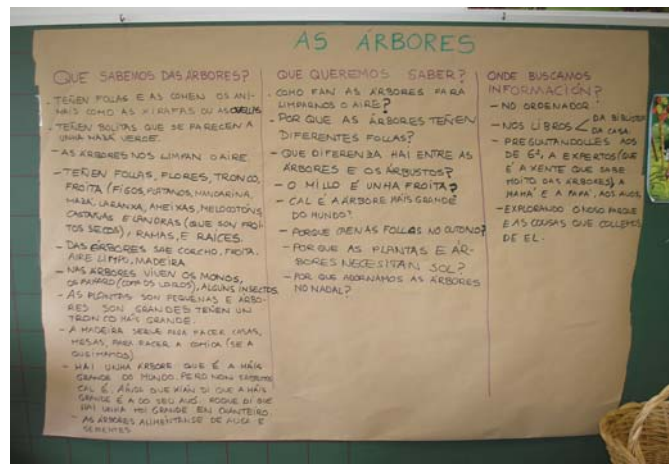 AS ÁRBORES
QUE SABEMOS DAS ÁRBORES?
- TEÑEN FOLLAS E AS COMEN OS ANI-
MAIS COMO AS XIRAFAS OU AS OVELLAS
- TEÑEN BOLITAS QUE SE PARECEN A
UNHA MAZÁ VERDE.
- AS ÁRBORES NOS LIMPAN O AIRE.
- TEÑEN FOLLAS, FLORES, TRONCO,
FROITA (FIGOS, PLÁTANOS, MANDARINA,
MAZÁ, LARANXA, AMEIXAS, MELOCOTÓNS,
CASTAÑAS E LANDRAS (QUE SON FROI-
TOS SECOS), RAMAS, E RAÍCES.
- DAS ÁRBORES SAE CORCHO, FROITA,
AIRE LIMPO, MADEIRA
- NAS ÁRBORES VIVEN OS MONOS,
OS PAXAROS (COMO OS LOROS), ALGUNS INSECTOS
- AS PLANTAS SON PEQUENAS E ÁRBO-
RES SON GRANDES TEÑEN UN
TRONCO MÁIS GRANDE.
- A MADEIRA SERVE PARA FACER CASAS,
MESAS, PARA FACER A COMIDA (SE A
QUEIMAMOS)
- HAI UNHA ÁRBORE QUE É A MÁIS
GRANDE DO MUNDO. PERO NON SABEMOS
CAL É. QUE XIAN DI QUE A MÁIS
GRANDE É A DO SEU AVÓ. ROQUE DI QUE
HAI UNHA MOI GRANDE EN CHANTEIRO.
- AS ÁRBORES ALIMÉNTANSE DE AUGA E
SEMENTES
QUE QUEREMOS SABER?
- COMO FAN AS ÁRBORES PARA
LIMPARNOS O AIRE?
- POR QUE AS ÁRBORES TEÑEN
DIFERENTES FOLLAS?
- QUE DIFERENZA HAI ENTRE AS
ÁRBORES E OS ÁRBUSTOS?
- O MILLO É UNHA FROITA?
- CAL É A ÁRBORE MÁIS GRANDE
DO MUNDO?
- PORQUE CAEN AS FOLLAS NO OUTONO?
- POR QUE AS PLANTAS E ÁR-
BORES NECESITAN SOL?
- POR QUE ADORNAMOS AS ÁRBORES
NO NADAL?
ONDE BUSCAMOS
INFORMACIÓN?
- NO ORDENADOR
- NOS LIBROS DA BIBLIOTECA
DA CASA.
- PREGUNTANDOLLES AOS
DE 6º, A EXPERTOS (QUE
É A XENTE QUE SABE
MOITO DAS ÁRBORES), A
MAMÁ E A PAPÁ, AOS AVÓS.
- EXPLORANDO O NOSO PARQUE
E AS COUSAS QUE COLLEMOS
DE EL.